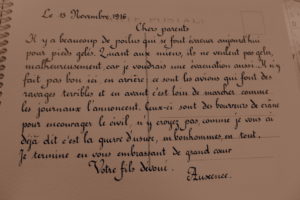 Le 15 Novembre, 1916
Chers parents
Il y a beaucoup de poilus qui se font évacuer aujourd'hui
pour pieds gelés. Quant aux miens, ils ne veulent pas geler,
malheureusement car je voudrais une évacuation aussi. Il n'y
fait pas bon ici en arrière ce sont les avions qui font des
ravages terribles et en avant c'est loin de marcher comme
les journaux l'annoncent. Ceux-ci sont des bourreurs de crâne
pour encourager le civil, n'y croyez pas comme je vous ai
déjà dit c'est la guerre d'usure, en bonhommes en tout.
Je termine en vous embrassant de grand cœur
Votre fils dévoué.
Auxence.